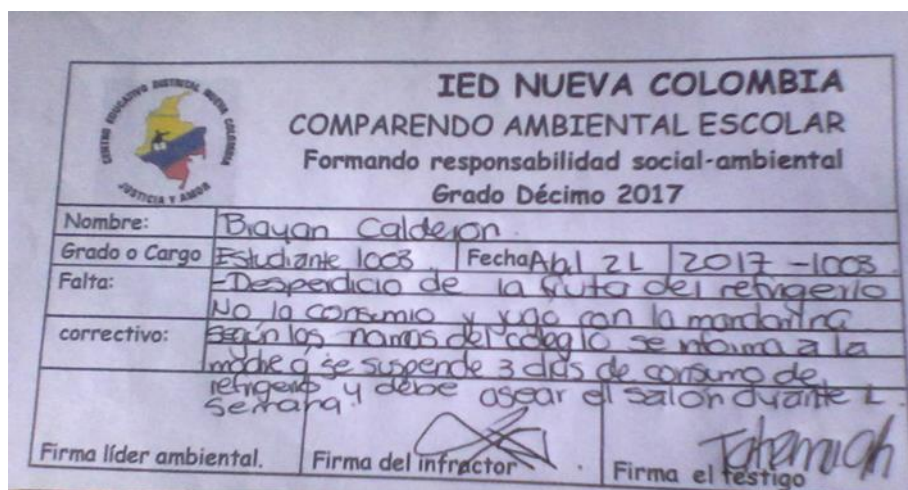 CENTRO EDUCATIVO DISTRITAL NUEVA COLOMBIA
JUSTICIA Y AMOR
IED NUEVA COLOMBIA
COMPARENDO AMBIENTAL ESCOLAR
Formando responsabilidad social-ambiental
Grado Décimo 2017
Nombre: Brayan Calderon.
Grado o Cargo Estudiante 1003. Fecha Abril 21 2017 - 1003
Falta: - Desperdicio de la fruta del refrigerio
No la consumio y jugo con la mandarina
correctivo: según las normas del colegio se informa a la
madre y se suspende 3 dias de consumo de
refrigerio y debe asear el salón durante 1
semana.
Firma líder ambiental. Firma del infractor. Firma el testigo